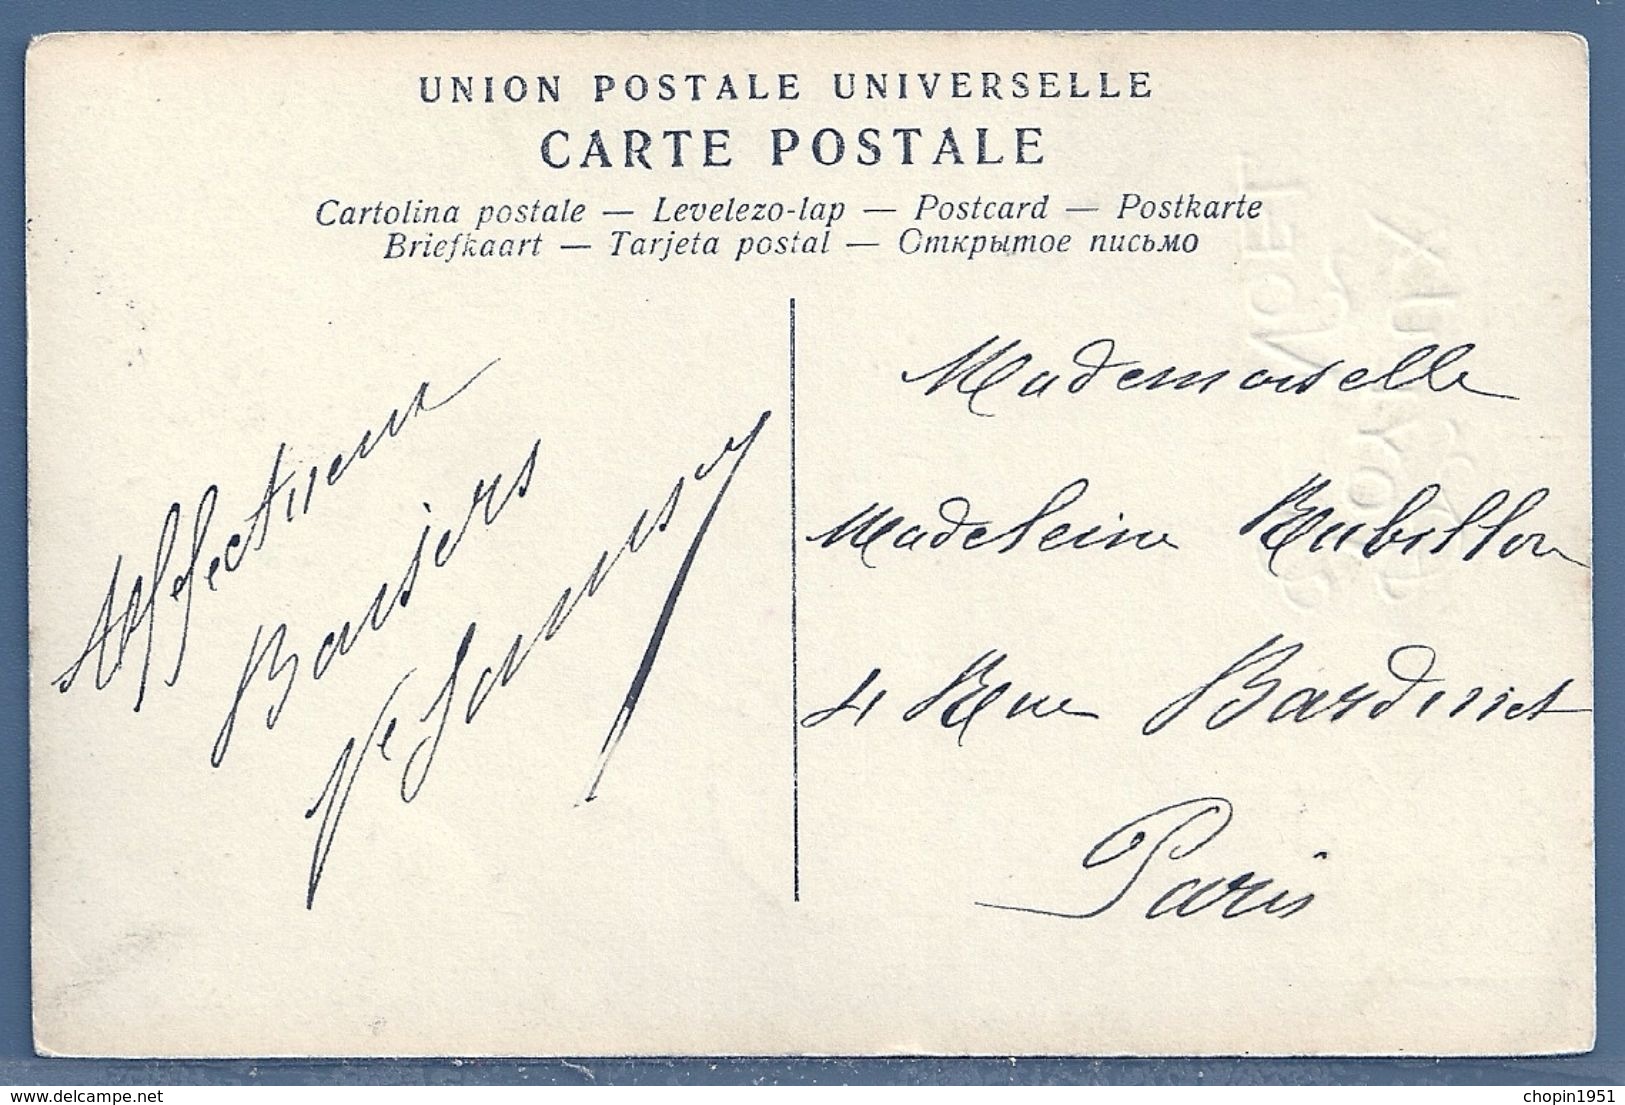 UNION POSTALE UNIVERSELLE
CARTE POSTALE
Cartolina postale — Levelezo-lap — Postcard — Postkarte
Briefkaart — Tarjeta postal — Открытое письмо
Affectueux
Baisiers
Mademoiselle
Madeleine Rubillon
4 Rue Bardinet
Paris
delcampe.net
chopin1951